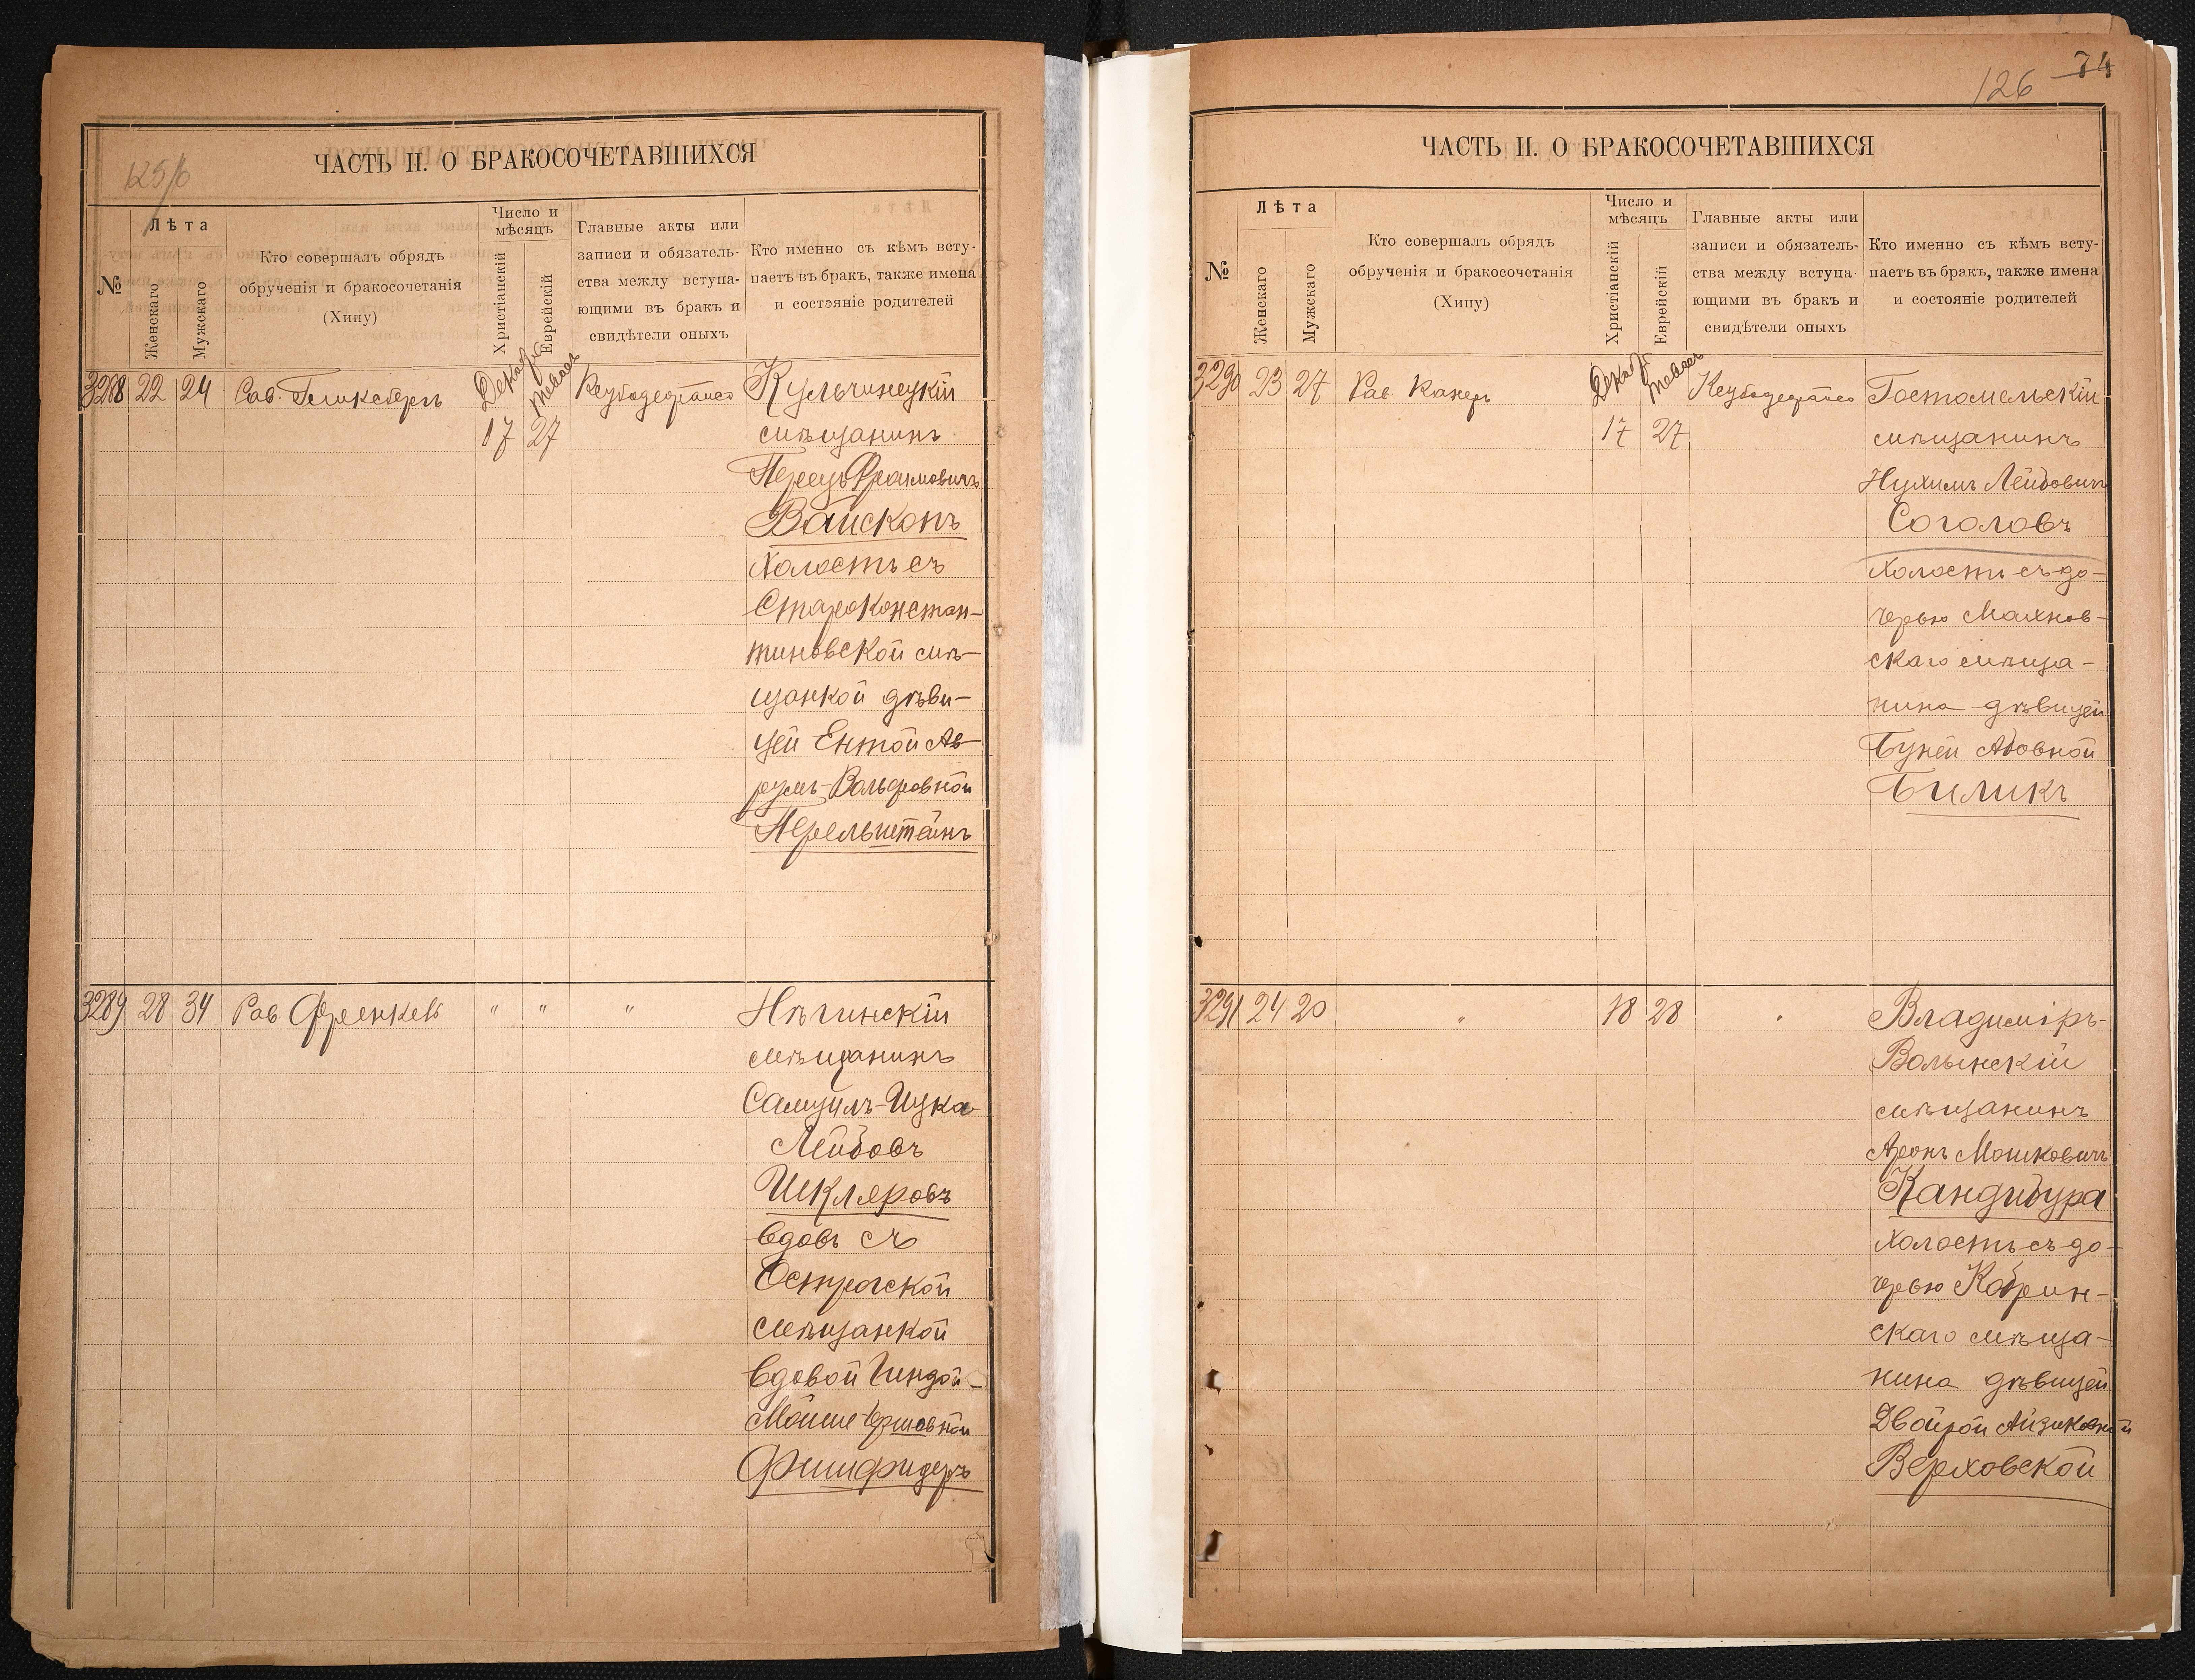 125/б
ЧАСТЬ II. О БРАКОСОЧЕТАВШИХСЯ
№
Лѣта
Женскаго
Мужскаго
Кто совершалъ обрядъ
обрученія и бракосочетанія
(Хипу)
Число и
мѣсяцъ
Христіанскій
Еврейскій
Главные акты или
записи и обязатель-
ства между вступа-
ющими въ бракъ и
свидѣтели оныхъ
Кто именно съ кѣмъ всту-
паетъ въ бракъ, также имена
и состояніе родителей
3288 22 24 Рав. Гликсбергъ
Декабр
17
Тевасъ
27
Кульчинецкій
мѣщанинъ
Перецъ Фроимовичъ
Войскопъ
Холостъ съ
Староконстан-
тиновской мѣ-
щанкой дѣви-
цей Ентой Ав-
румъ-Вольфовной
Перельштейнъ
3289 28 34 Рав Френкель " " "
Нѣжинскій
мѣщанинъ
Самуилъ-Ицка
Лейбовъ
Шкляровъ
вдовъ съ
Острогской
мѣщанкой
вдовой Гиндой-
Мойше-Гершовной
126 74
ЧАСТЬ II. О БРАКОСОЧЕТАВШИХСЯ
№
Лѣта
Женскаго
Мужскаго
Кто совершалъ обрядъ
обрученія и бракосочетанія
(Хипу)
Число и
мѣсяцъ
Христіанскій
Еврейскій
Главные акты или
записи и обязатель-
ства между вступа-
ющими въ бракъ и
свидѣтели оныхъ
Кто именно съ кѣмъ всту-
паетъ въ бракъ, также имена
и состояніе родителей
3290 23 27 Рав. Канеръ
Декабр
17
Тевасъ
27
Гостомельскій
мѣщанинъ
Нухимъ Лейбовичъ
Соголовъ
Холостъ съ до-
черью Махнов-
скаго мѣща-
нина дѣвицей
Буней Абовной
Биликъ
3291 24 20 " 18 28 "
Владиміръ-
Волынскій
мѣщанинъ
Аронъ Мошковичъ
Кандибура
Холостъ съ до-
черью Кобрин-
скаго мѣща-
нина дѣвицей
Двойрой Айзиковной
Верховской